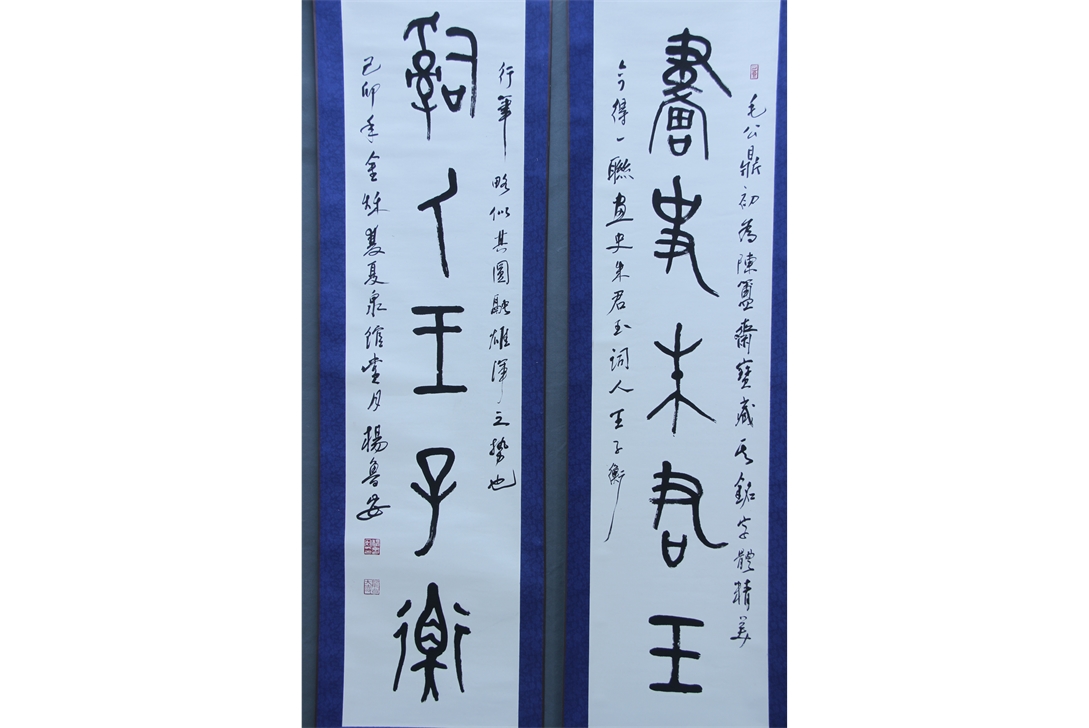 毛公鼎初為陳簠齋寶藏其銘字體精美
畫史朱君玉
今得一聯畫史朱君玉詞人王子衡
行筆略似其圓融雄渾之勢也
詞人王子衡
己卯年金秌雙夏泉館月楊魯安